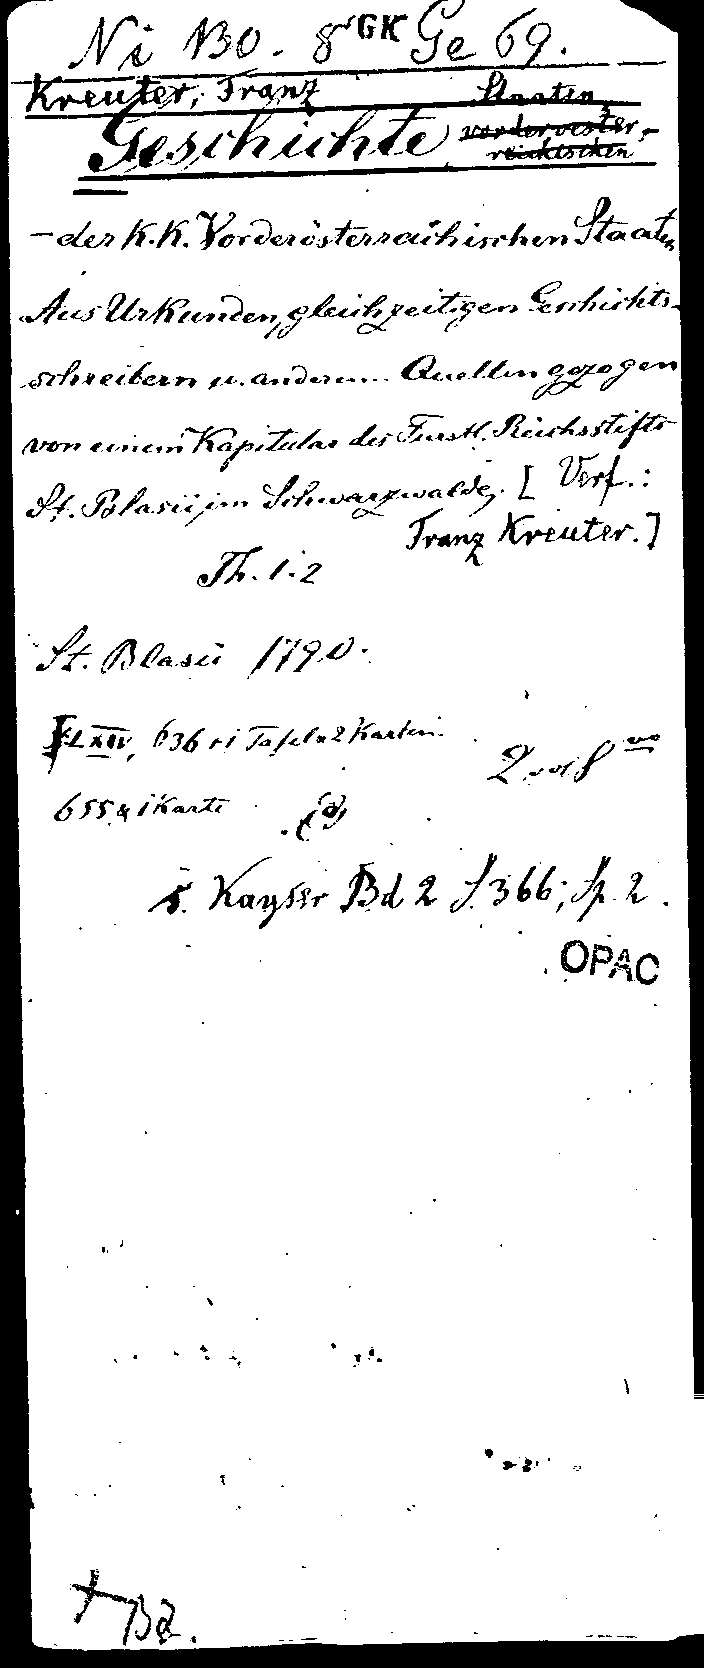 Ni 130. 8° GK Ge 69.
Kreuter, Franz
Staaten,
Geschichte, vorderoester-
reichischen
- der K.K. Vorderösterreichischen Staaten
Aus Urkunden, gleichzeitigen Geschichts-
schreibern u. anderen Quellen gezogen
von einem Kapitular des Fürstl. Reichsstifts
St. Blasii im Schwarzwalde. [Verf.:
Franz Kreuter.]
Th. 1.2
St. Blasii 1790.
XLXIV, 636 + 1 Tafel & 2 Karten.
2 vol 8vo
655 & 1 Karte
s. Kayser Bd 2 S. 366; Sp. 2.
OPAC